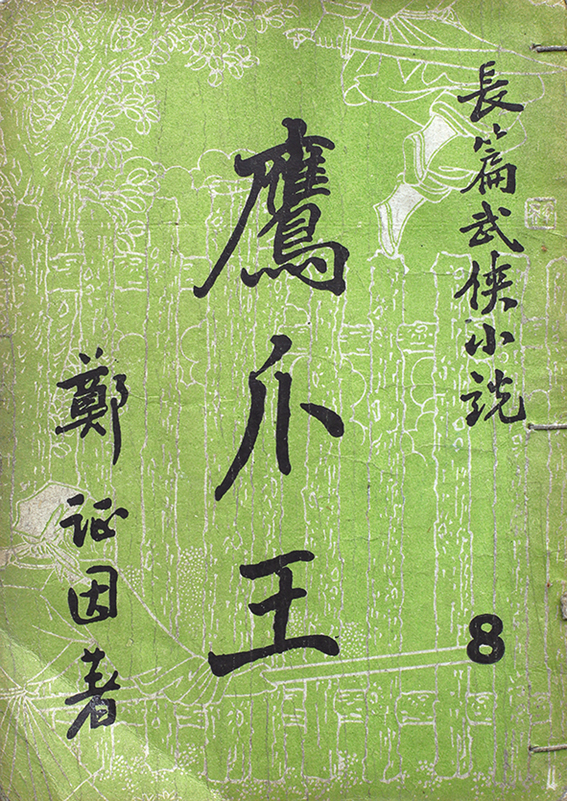 長篇武俠小説
8
鷹爪王
鄭証因著